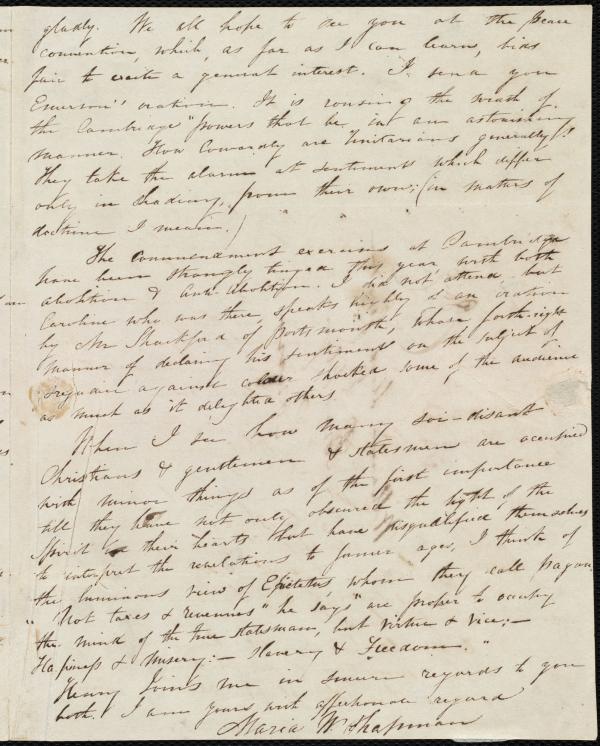 gladly. We all hope to see you at the Peace
convention, which, as far as I can learn, bids
fair to excite a general interest. I send you
Emerson's oration. It is rousing the wrath of
the Cambridge "powers that be" in an astonishing
manner. How Cowardly are Unitarians generally!
They take the alarm at sentiments which differ
only in shading, from their own; (in matters of
doctrine I mean.)
The Commencement exercises at Cambridge
have been strongly tinged this year with both
abolition & Anti-Abolition. I did not attend but
Caroline who was there, speaks highly of an oration
by Mr Shackford of Portsmouth, whose forth-right
manner of declaring his sentiment on the subject of
prejudice against color shocked some of the audience
as much as it delighted others
When I see how many soi-disant
Christians & gentlemen & statesmen are occupied
with minor things as of the first importance
till they have not only obscured the light of the
spirit in their hearts but have disqualified themselves
to interpret the revelations to former ages, I think of
the luminous view of Epictetus, whom they call pagan.
"Not taxes & revenues" he says "are proper to occupy
the mind of the true statesman, but virtue & vice; —
Happiness & Misery: — Slavery & Freedom."
Henry joins me in sincere regards to you
both. I am yours with affectionate regard
Maria W. Chapman